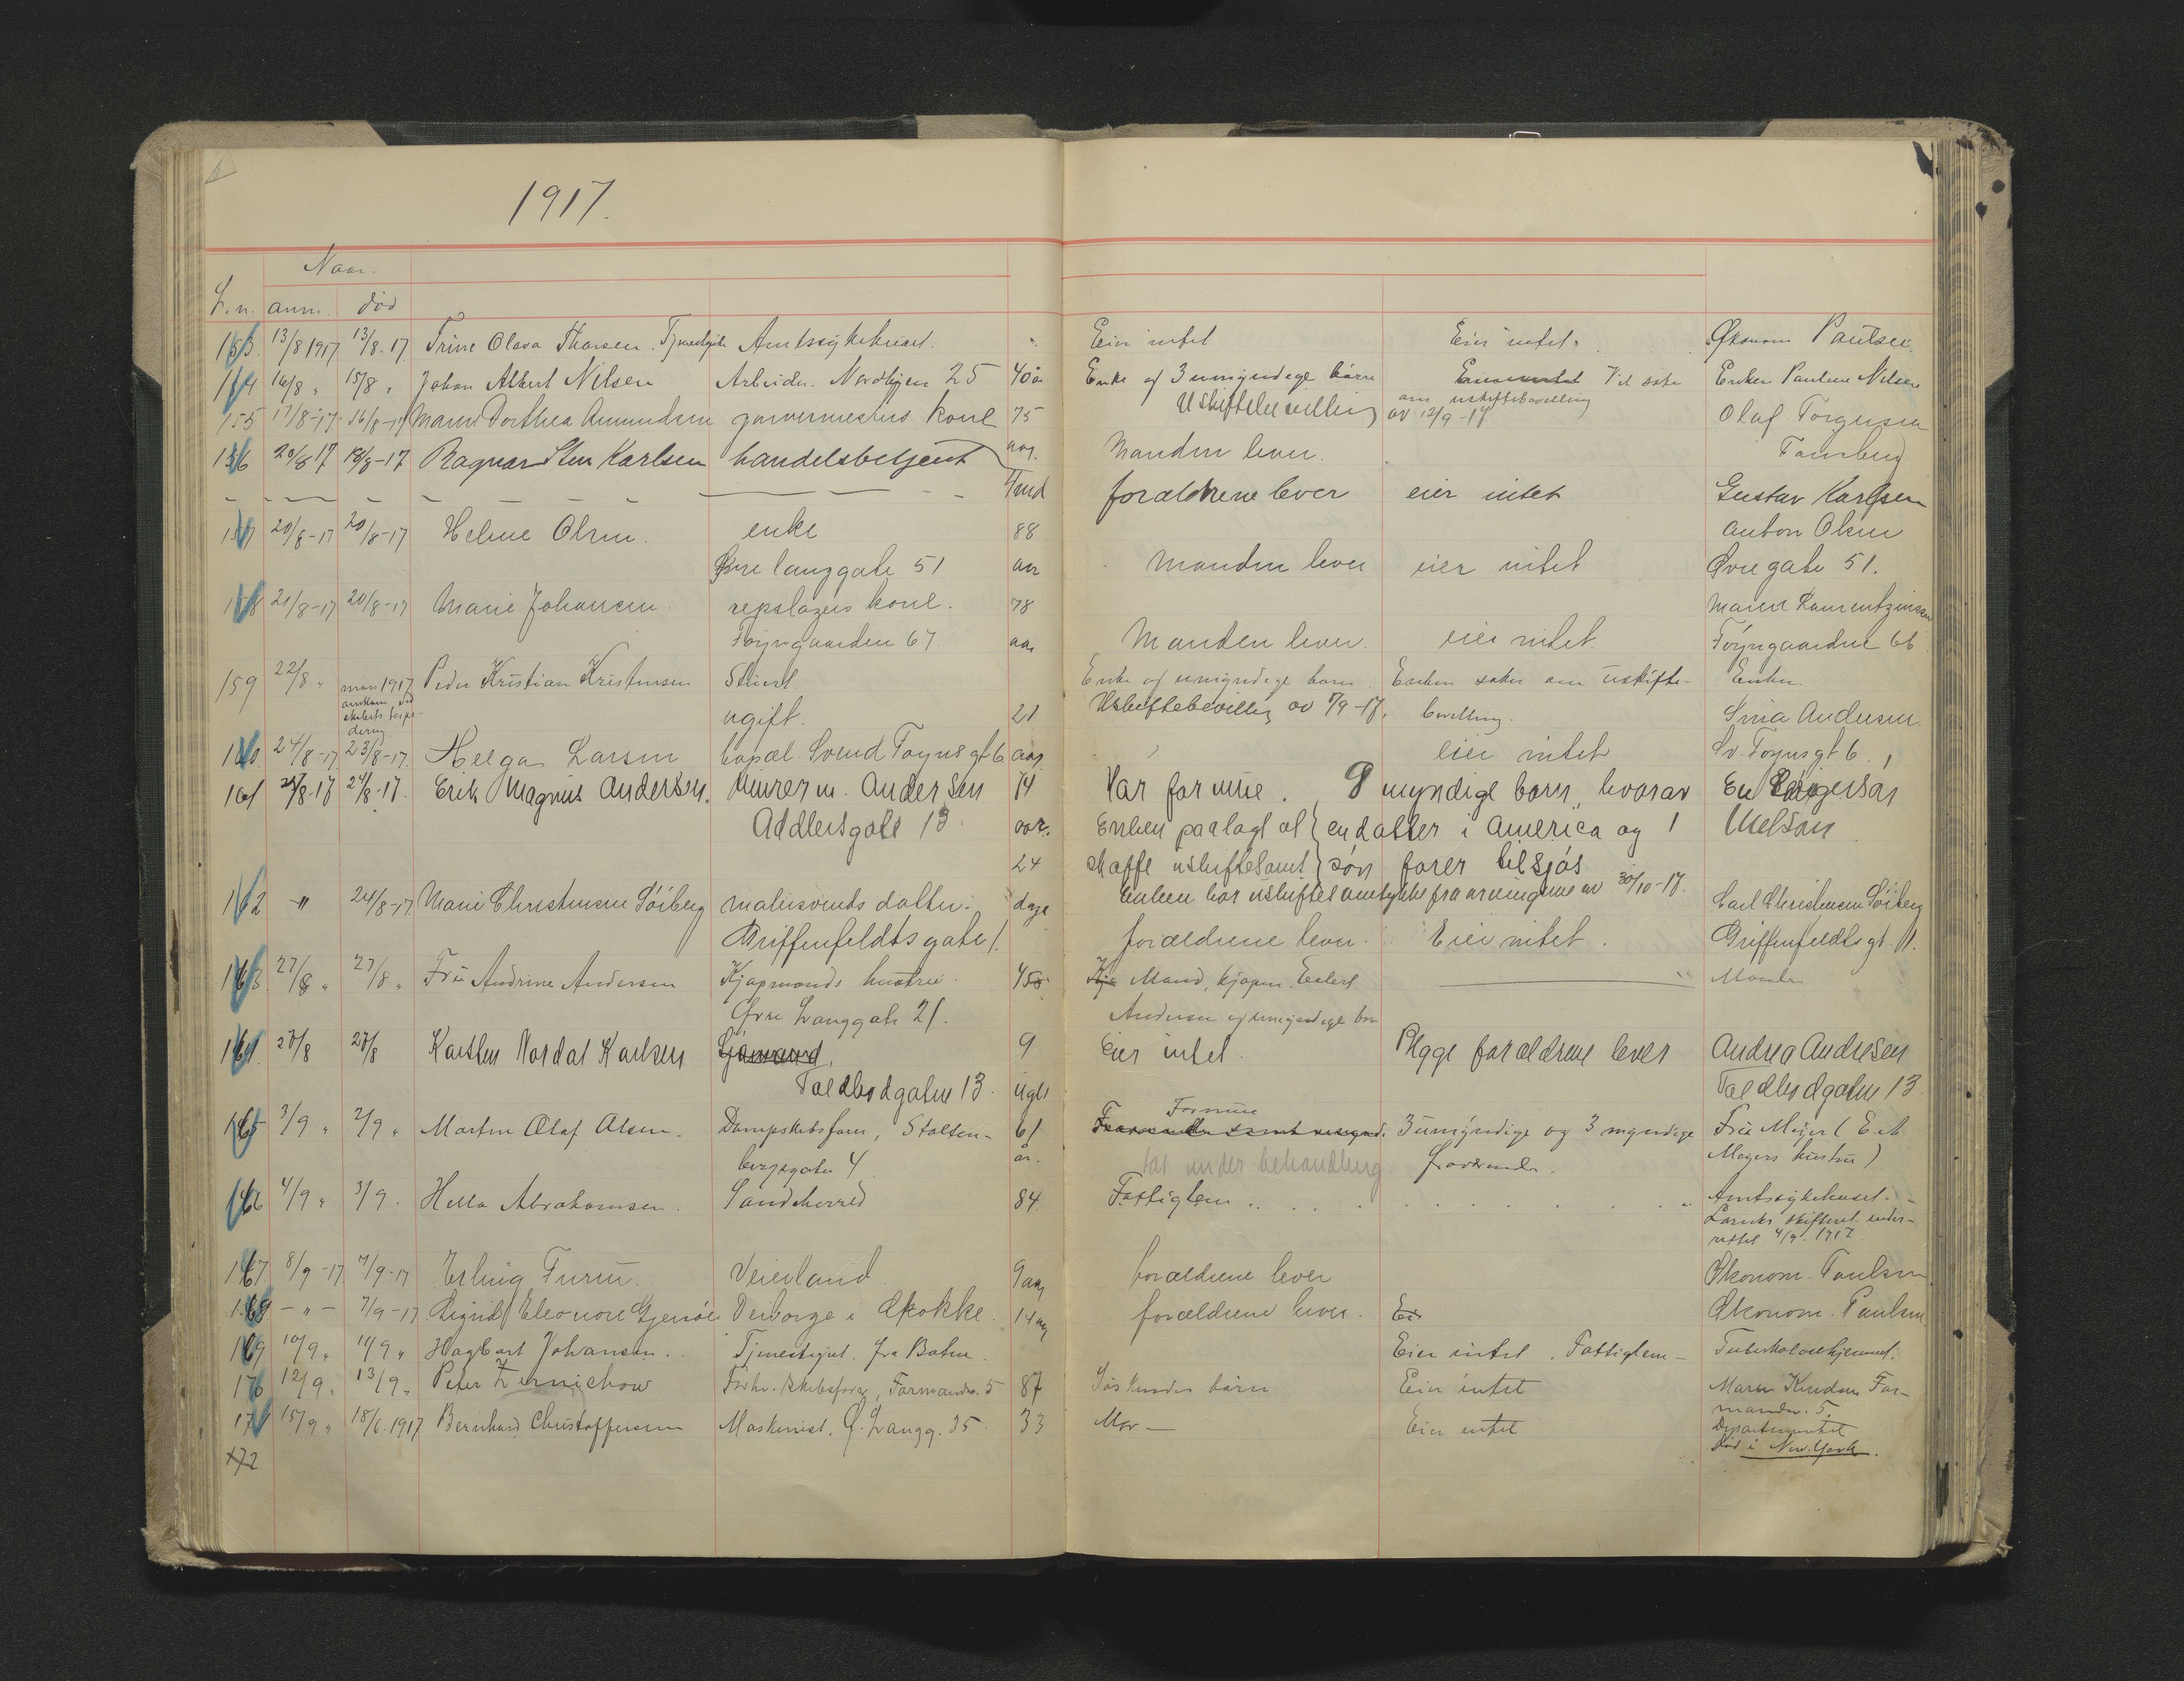 1917.
Naar.
L.n. anm. död
153 13/8 1917 13/8.17 Trine Olava Thorsen. Tjenestepike Amtssykehuset. " Eier intet Eier intet. Økonom Paulsen.
154 16/8 " 15/8 " Johan Albert Nilsen Arbeider. Nordbyen 25 40 år Enke og 3 umyndige børn Eier intet Vil søke Enken Pauline Nilsen
Uskiftebevilling om uskiftebevilling
155 17/8-17. 16/8-17 Maren Dorthea Amundsen garvermesters kone 75 av 12/9-17. Olaf Torgersen
aar. Manden lever. Tønsberg
156 20/8 17 18/8-17 Ragnar Sten Karlsen handelsbetjent
4 md forældrene lever eier intet Gustav Karlsen
157 20/8-17 20/8-17 Helene Olsen. enke 88 Anton Olsen
Øvre langgate 51 aar Manden lever eier intet Øvregate 51.
158 21/8-17 20/8-17 Marie Johansen repslagers kone. 78 Maren Laurentzensen
Föyngaarden 67 aar Manden lever. eier intet. Föyngaarden 66
159 22/8 " mars 1917 Peder Kristian Kristensen Stuert Enke og umyndige barn Enken søker om uskifte- Enken.
ugift. 21 Uskiftebevilling av 7/9-17. bevilling. Sina Andersen.
160 24/8-17 23/8-17. Helga Larsen bopæl. Svend Foyns gt 6 aar eier intet Sv. Foyns gt 6.
161 25/8-17 24/8-17. Erik Magnus Andersen. Murerm. Andersen 74 Har formue. 8 myndige børn, hvorav En
Addlersgate 13. aar. Enken paalagt at en datter i America og 1
24 skaffe uskiftesamt søn farer tilsjøs
Enken har uskiftet samtykke fra arvingene av 30/10-17.
162 -"- 24/8-17 Marie Christensen Söiberg malersvends datter. dage Carl Christensen Söiberg
Griffenfeldts gate 1. forældrene lever. Eier intet. Griffenfeldts gt. 11.
163 27/8 " 27/8 " Fru Andrine Andersen Kjøpmands hustru. 45 Mand, kjøpm. Eilert " Manden
Øvre Langgate 21. Andersen og umyndige børn
164. 28/8 28/8 Karsten Nordal Karlsen Sjömand, 9 Eier intet. Begge forældrene lever Andrea Andresen
Toldbodgaten 13. uger Toldbodgaten 13.
165 3/9 " 2/9 " Martin Olaf Olsen. Dampskibsförer, Stolten- 61 Formue 3 umyndige og 3 myndige Fru Meyer (E.A.
bergsgaten 4 år. tat under behandling. Meyers hustru)
166 4/9 " 3/9. Hella Abrahamsen. Sandeherred 84. Fattiglem Amtssykehuset.
Larviks skifteret under-
rettet 4/9. 1917
167 8/9-17 7/9-17 Erling Furu. Veierland 9 aar forældrene lever Økonom. Paulsen
168 -"- 7/9-17 Sigrid Eleonore Gjersöe Verborge i Skokke. 14 aar forældrene lever. Økonom. Paulsen
169 10/9 " 10/9 " Hagbart Johansen. Tjenestegut. fra Botne. Eier intet. Fattiglem - Tuberkulosehjemmet.
170 12/9. 13/9 " Peter Zernichow Forhv. skibsförer, Farmandsv. 5 87 Søskendes børn Eier intet Maren Knudsen Far-
mandsv. 5.
171 15/9 " 18/6.1917 Bernhard Christoffersen Maskinist. Ö. Langg. 35. 33 Mor - Eier intet Departementet
Död i New York.
172